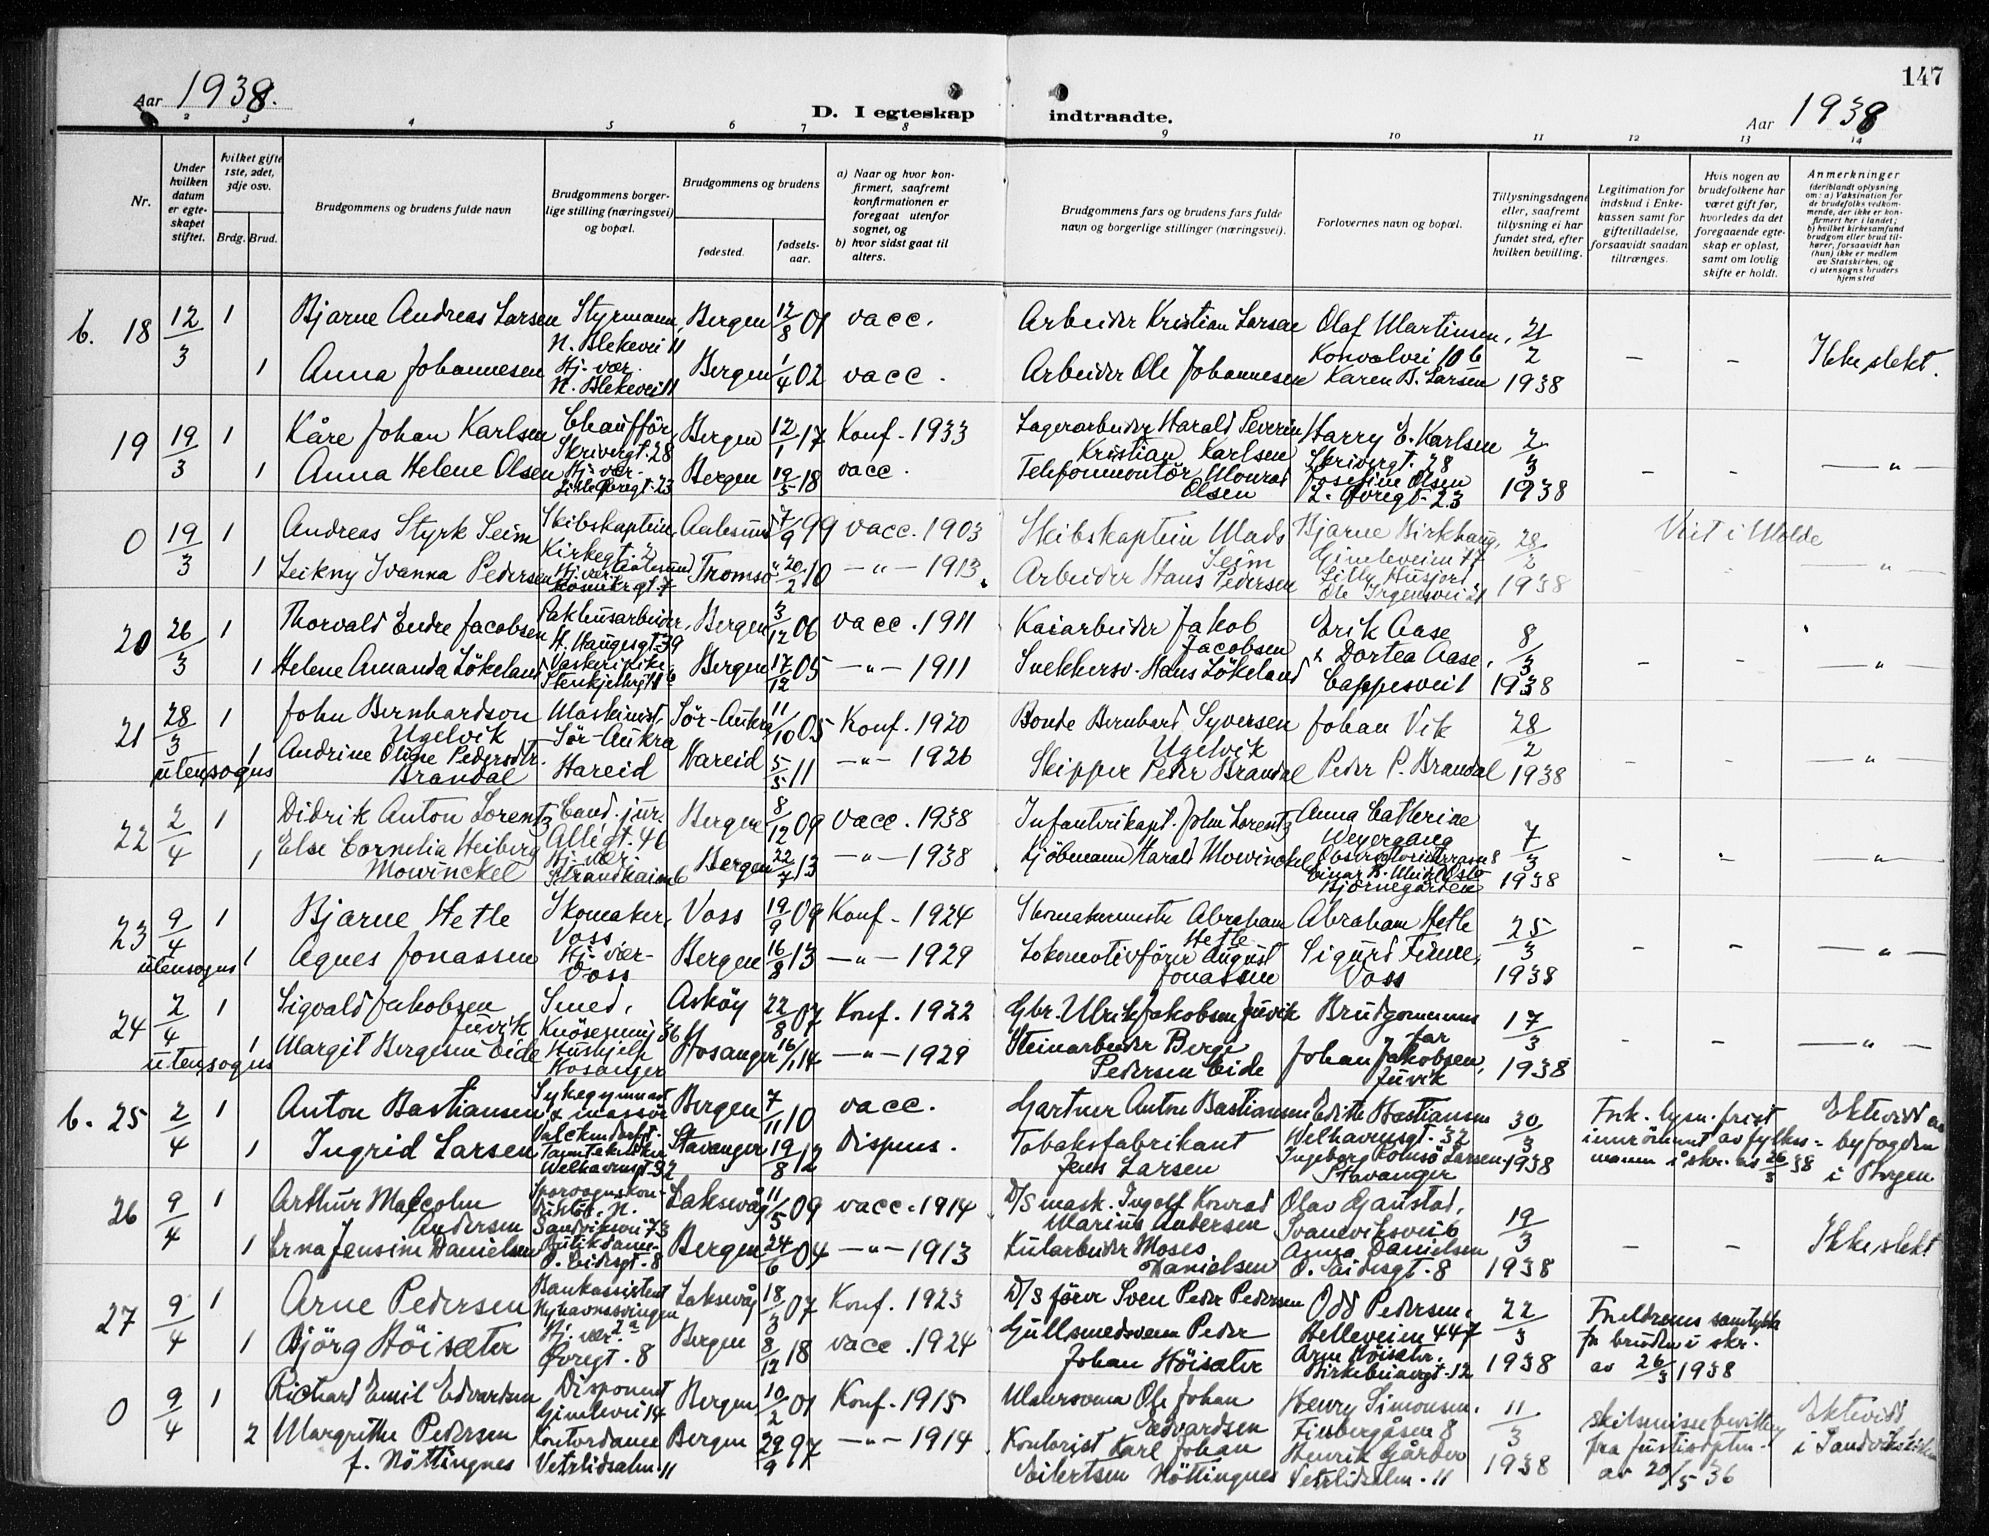 147
Aar 1938.
D. I egteskap indtraadte.
Aar 1938
2 3 4 5 6 7 8 9 10 11 12 13 14
Nr.
Under hvilken datum er egteskapet stiftet.
hvilket gifte 1ste, 2det, 3dje osv.
Brdg. Brud.
Brudgommens og brudens fulde navn
Brudgommens borgerlige stilling (næringsvei) og bopæl.
Brudgommens og brudens
fødested.
fødselsaar.
a) Naar og hvor konfirmert, saafremt konfirmationen er foregaat utenfor sognet, og
b) hvor sidst gaat til alters.
Brudgommens fars og brudens fars fulde navn og borgerlige stillinger (næringsvei).
Forlovernes navn og bopæl.
Tillysningsdagene eller, saafremt tillysning ei har fundet sted, efter hvilken bevilling.
Legitimation for indskud i Enkekassen samt for giftetilladelse, forsaavidt saadan tiltrænges.
Hvis nogen av brudefolkene har været gift før, hvorledes da det foregaaende egteskap er opløst, samt om lovlig skifte er holdt.
Anmerkninger
(deriblandt oplysning om: a) Vaksination for de brudefolks vedkommende, der ikke er konfirmert her i landet; b) hvilket kirkesamfund brudgom eller brud tilhører, forsaavidt han (hun) ikke er medlem av Statskirken, og c) utensogns bruders hjemsted
b. 18 12/3 1 Bjarne Andreas Larsen Styrmann, N. Blekevei 11 Bergen 12/8 01 vacc. Arbeider Kristian Larsen Olaf Martinsen, Konvalvei 10 b 21/2 1938 - - Ikke slekt.
1 Anna Johannesen Hj. vær. N. Blekevei 11 Bergen 1/4 02 vacc. Arbeider Ole Johannesen Karen B. Larsen
19 19/3 1 Kåre Johan Karlsen Chaufför, Skrivergt. 28 Bergen 12/1 17 Konf. 1933 Lagerarbeider Harald Severin Kristian Karlsen Harry E. Karlsen Skrivergt. 28 2/3 1938 - - — " —
1 Anna Helene Olsen Hj. vær. Lille Øvregt. 23 Bergen 19/5 18 vacc. Telefonmontör Monrad Olsen Josefine Olsen L. Øvregt. 23
0 19/3 1 Andreas Styrk Seim Skibskaptein, Kirkegt. 2 Aalesund Aalesund 7/9 99 vacc. 1903 Skibskaptein Mads Seim Bjarne Birkhaug, Gimleveien 17 28/2 1938 Viet i Molde - " -
1 Leikny Ivanna Pedersen Hj. vær. Tromsø 20/2 10 - " - 1913. Arbeider Hans Pedersen Lilly Husjord, Ole Irgensvei 21
20 26/3 1 Thorvald Endre Jacobsen Pakhusarbeider, H. Haugesgt. 39 Bergen 3/12 06 vacc. 1911 Kaiarbeider Jakob Jacobsen Erik Aase & Dortea Aase, Cappesvei 1 8/3 1938 - - - " -
1 Helene Amanda Lökeland Bergen 17/12 05 - " - 1911 Snekkersv. Hans Lökeland
21 28/3 utensogns 1 John Bernhardson Ugelvik Maskinist, Sör-Aukra Sör-Aukra 11/10 05 Konf. 1920 Bonde Bernhard Syversen Ugelvik Johan Vik 28/2 1938 - - - " -
1 Andrine Oline Pedersdtr. Brandal Hareid Hareid 5/5 11 - " - 1926 Skipper Peder Brandal Peder P. Brandal
22 2/4 1 Didrik Anton Lorentz Cand. jur. Alligt. 46 Bergen 8/12 09 vacc. 1938 Infanterikapt. John Lorentz Anna Catherine Weyergang 7/3 1938 - - - " -
1 Else Cornelia Heiberg Mowinckel Hj. vær. Strandkaien 6 Bergen 22/7 13 - " - 1938 Kjöbmann Harald Mowinckel Bjørnegården
23 9/4 utensogns 1 Bjarne Hetle Skomaker, Voss Voss 19/9 09 Konf. 1924 Skomakermester Abraham Hetle Abraham Hetle 25/3 1938 - - — " —
1 Agnes Jonassen Hj. vær. Voss Bergen 16/8 13 - " - 1929 Lokomotivförer August Jonassen Sigurd Finne, Voss
24 2/4 utensogns 1 Sigvald Jakobsen Juvik Smed, Knösesmug 36 Askøy 22/8 07 Konf. 1922 Gbr. Ulrik Jakobsen Juvik Brudgommens far 17/3 1938 - - — " —
1 Margit Bergesen Eide Hushjelp Hosanger Hosanger 16/1 14 - " - 1929 Steinarbeider Berge Pedersen Eide Johan Jakobsen, Juvik
b. 25 2/4 1 Anton Bastiansen Sykegymnast & massör Bergen 7/11 10 vacc. Gartner Anton Bastiansen Edith Bastiansen Welhavensgt. 32 30/3 1938 Fork. lysn. frist innrömmet av fylkesmann i skr. av 26/3 38 Ektevidd av byfogden i Bergen
1 Ingrid Larsen Tanntekniker Welhavensgt. 32 Stavanger 19/8 12 Dispens. Tobaksfabrikant Jens Larsen Ingeborg Larsen Stavanger
26 9/4 1 Arthur Malcolm Andersen Sporvognskonduktör, N. Sandviksvei 73 Laksevåg 11/5 09 vacc. 1914 D/S mask. Ingolf Konrad Marius Andersen Olav Gaustad, Svaneviksvei 6 19/3 1938 - - Ikke slekt
1 Erna Jensine Danielsen Butikdame O. Eidesgt. 8 Bergen 24/6 04 - " - 1913 Kularbeider Moses Danielsen Anna Danielsen O. Eidesgt. 8
27 9/4 1 Arne Pedersen Bankassistent Nyhavnssvingen 2a Laksevåg 18/3 07 Konf. 1923 D/S förer Sven Peder Pedersen Odd Pedersen, Helleveien 447 22/3 1938 Foreldrenes samtykke for bruden i skr. av 26/3 1938
1 Björg Höisæter Hj. vær. Øvregt. 8 Bergen 8/12 18 vacc. 1924 Gullsmedsvenn Peder Johan Höisæter Arne Höisæter, Birkebeinergt. 12
0 9/4 1 Richard Emil Edvardsen Disponent Gimlevei 14 Bergen 10/2 01 Konf. 1915 Malersvenn Ole Johan Edvardsen Henry Simonsen, Finbergåsen 8 11/3 1938 skilsmissebevilling fra Justisdptm. av 20/5 36 Ektevidd i Sandvikskirken
2 Margrethe Pedersen f. Nöttingnes Kontordame Vetrlidsalm. 11 Bergen 29/9 97 - " - 1914 Kontorist Karl Johan Eilertsen Nöttingnes Henrik Gårder Vetrlidsalm. 11